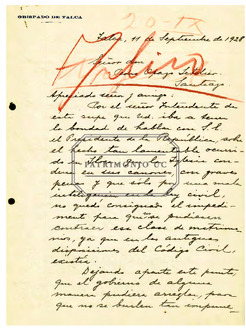 20-IX
OBISPADO DE TALCA
Talca, 11 de Septiembre de 1928
Señor don
Santiago
Apreciado señor y amigo:
Por el señor Intendente de
esta supe que Ud. iba a tener
la bondad de hablar con S.E.
el Presidente de la República sobre
el hecho tan lamentable ocurri-
do en
dena en sus canones, con graves
penas. Y que solo por una mala
inteligencia en la ley civil,
no quedó consignado el impedi-
mento para que se pudiesen
contraer esa clase de matrimo-
nios, ya que en las antiguas
disposiciones del Código Civil,
existía.
Dejando aparte este punto,
que el gobierno de alguna
manera pudiera arreglar, para
que no se burlen tan impune
PATRIMONIO UC